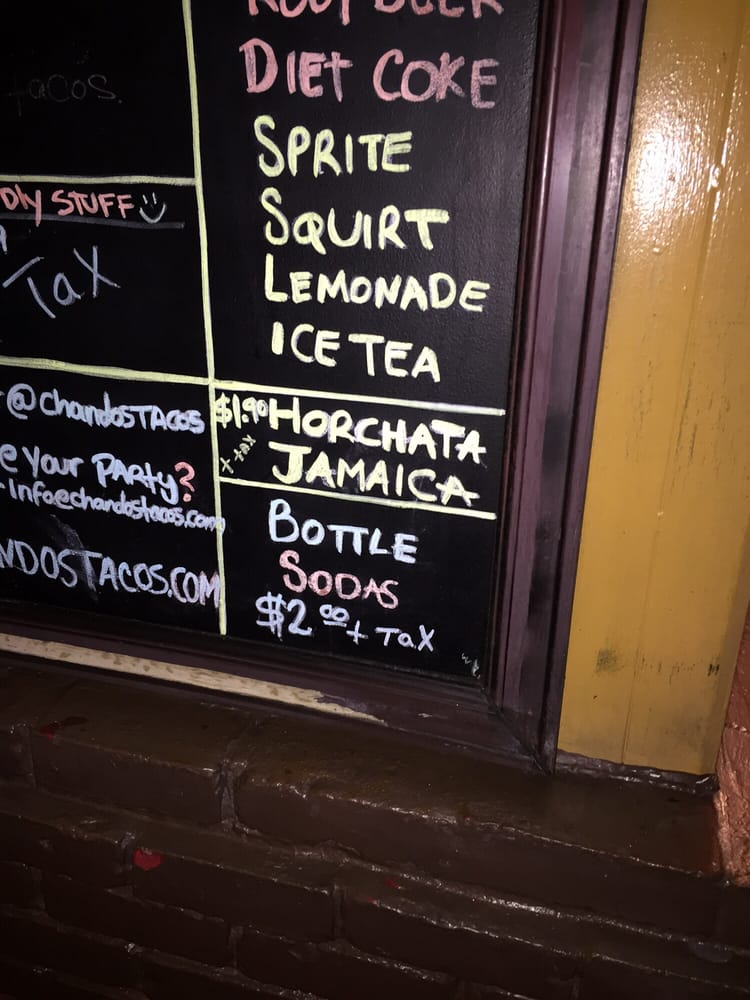 tacos.
Dly STUFF
Tax
@chandosTACOS
e your PARty?
-info@chandostacos.com
NDOSTACOS.COM
ROOT BEER
DIEt COKE
SPRITE
SQUIRT
LEMONADE
ICE TEA
$1.90 HORCHATA
+ tax JAMAICA
BOTTLE
SODAS
$2.00 + TaX